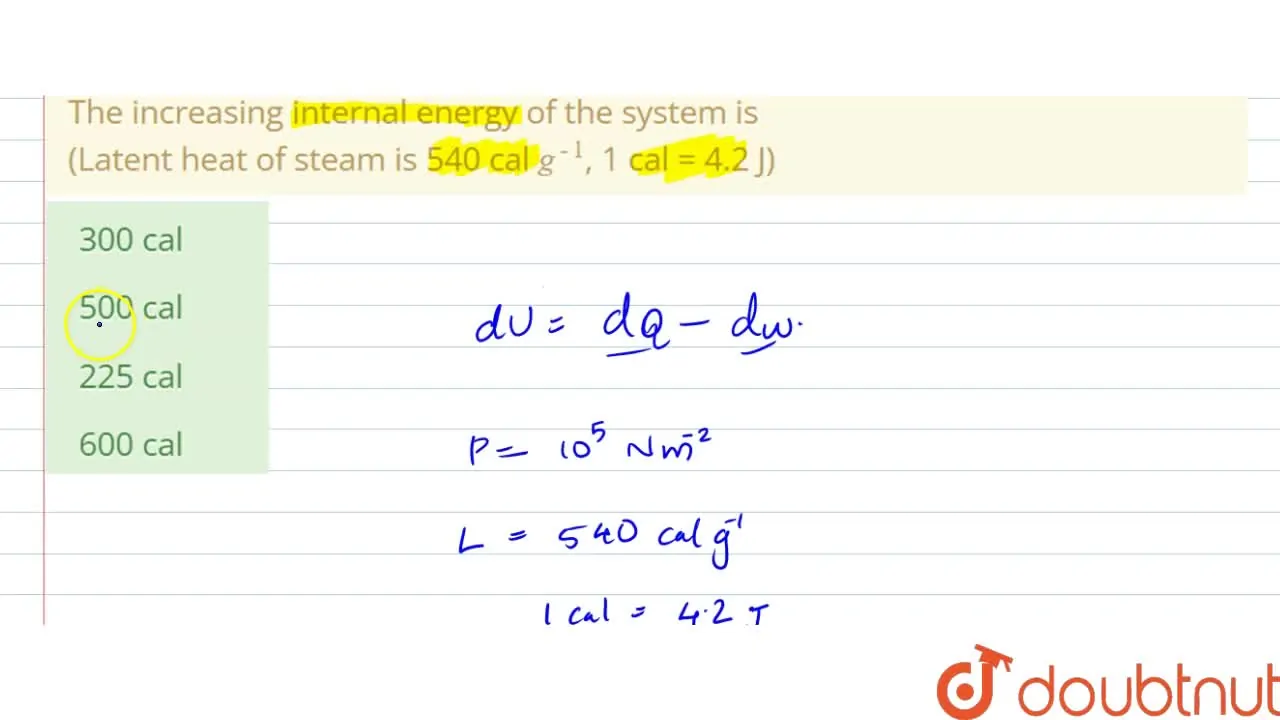 The increasing internal energy of the system is
(Latent heat of steam is 540 cal g⁻¹, 1 cal = 4.2 J)
300 cal
500 cal
225 cal
600 cal
dU = dQ - dw.
P = 10⁵ Nm⁻²
L = 540 cal g⁻¹
1 cal = 4.2 J
doubtnut